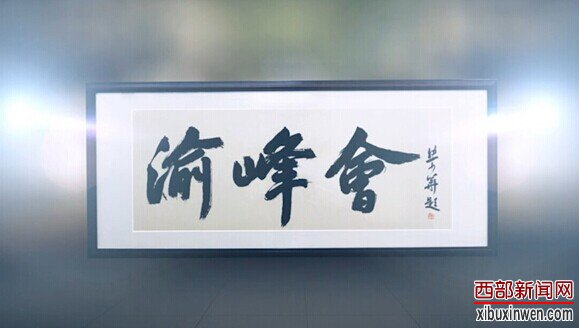 渝峰會
题
西部新闻网
xibuxinwen.com